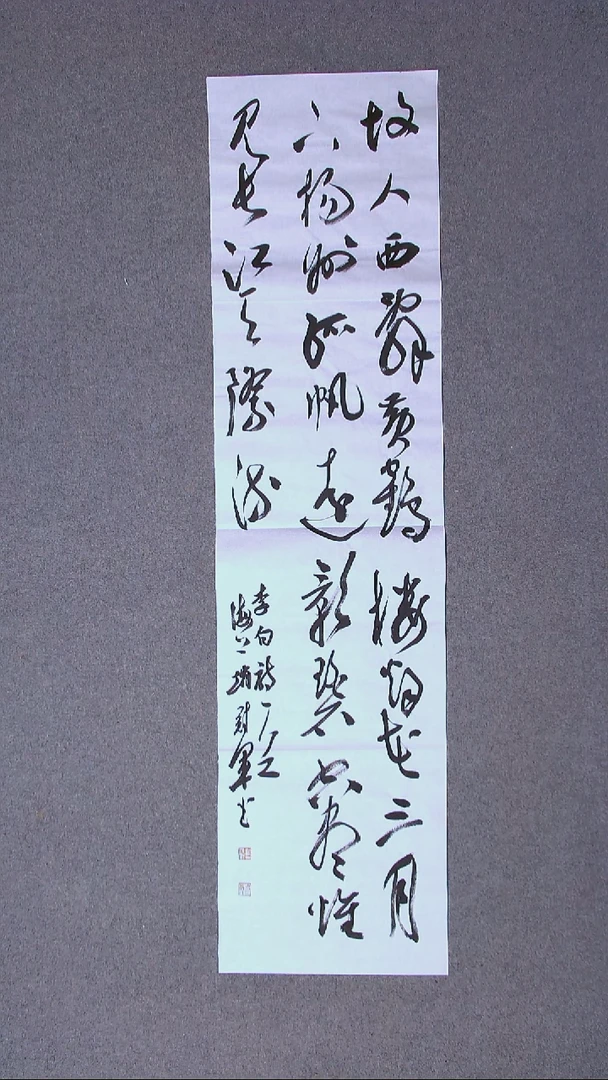 故人西辞黄鹤楼烟花三月
下扬州孤帆远影碧空尽惟
见长江天际流
李白诗一首
海上
军书